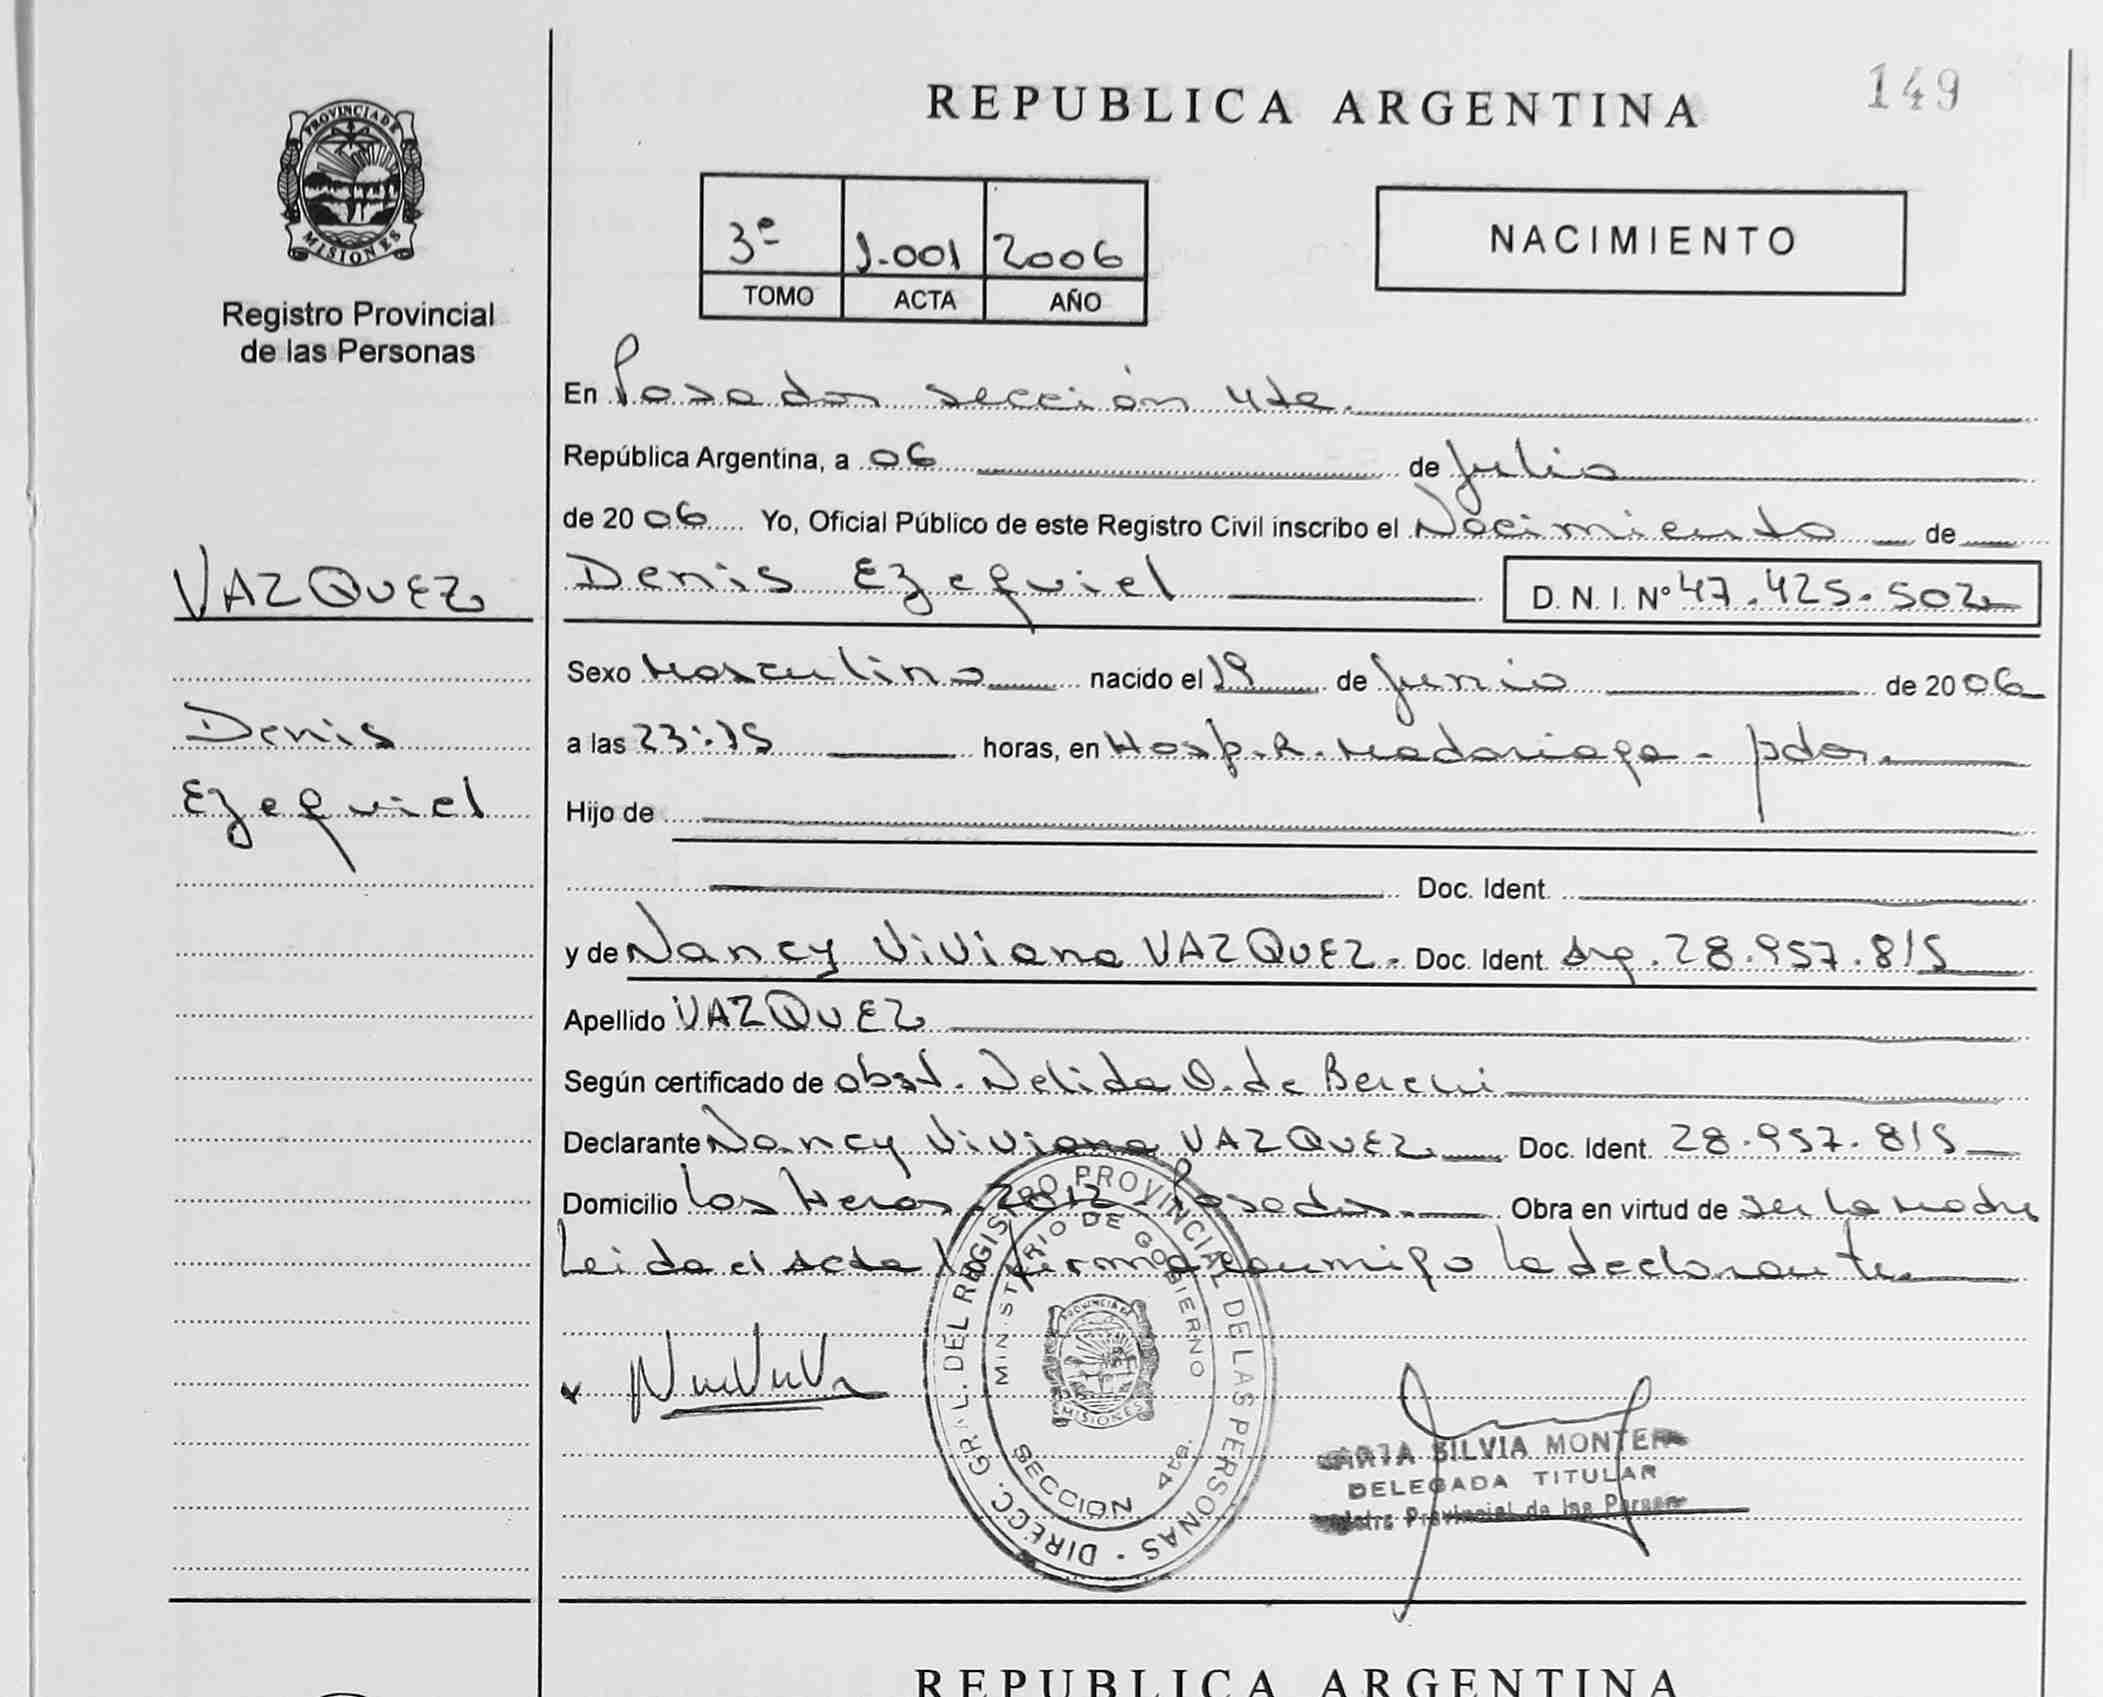 149
REPUBLICA ARGENTINA
PROVINCIA DE
MISIONES
Registro Provincial
de las Personas
3º 1.001 2006
TOMO ACTA AÑO
NACIMIENTO
En Posadas sección 4ta.
República Argentina, a 06 de Julio
de 2006 Yo, Oficial Público de este Registro Civil inscribo el Nacimiento de
VAZQUEZ
Denis Ezequiel D. N. I. Nº 47.425.502
Sexo Masculino nacido el 19 de Junio de 2006
Denis
a las 23:15 horas, en Hosp. R. Madariaga - pdas.
Ezequiel
Hijo de
Doc. Ident.
y de Nancy Viviana VAZQUEZ. Doc. Ident. Arg. 28.957.815
Apellido VAZQUEZ
Según certificado de obst. Nelida O. de
Declarante Nancy Viviana VAZQUEZ Doc. Ident. 28.957.815
Domicilio Las Heras 2012 Posadas. Obra en virtud de ser la madre
Leida el Acta firma conmigo la declarante
DIRECC. GRAL. DEL REGISTRO PROVINCIAL DE LAS PERSONAS
MINISTERIO DE GOBIERNO
PROVINCIA DE
MISIONES
SECCION 4ta.
SILVIA MONTER
DELEGADA TITULAR
Provincial de las Person
REPUBLICA ARGENTINA